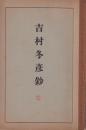 吉村冬彦鈔